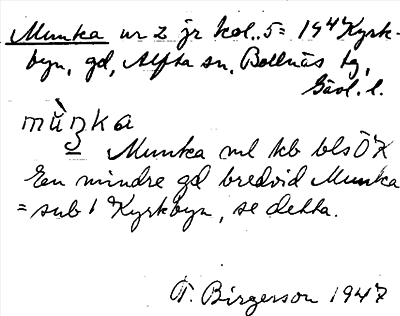 Munka nr 2 jr kol. 5 = 19⁴7 Kyrk-
byn, gd, Alfta sn, Bollnäs tg,
Gävl. l.
mùŋka
Munka ml kb bls ÖK
En mindre gd bredvid Munka
= sub 1 Kyrkbyn, se detta.
T. Birgerson 1947